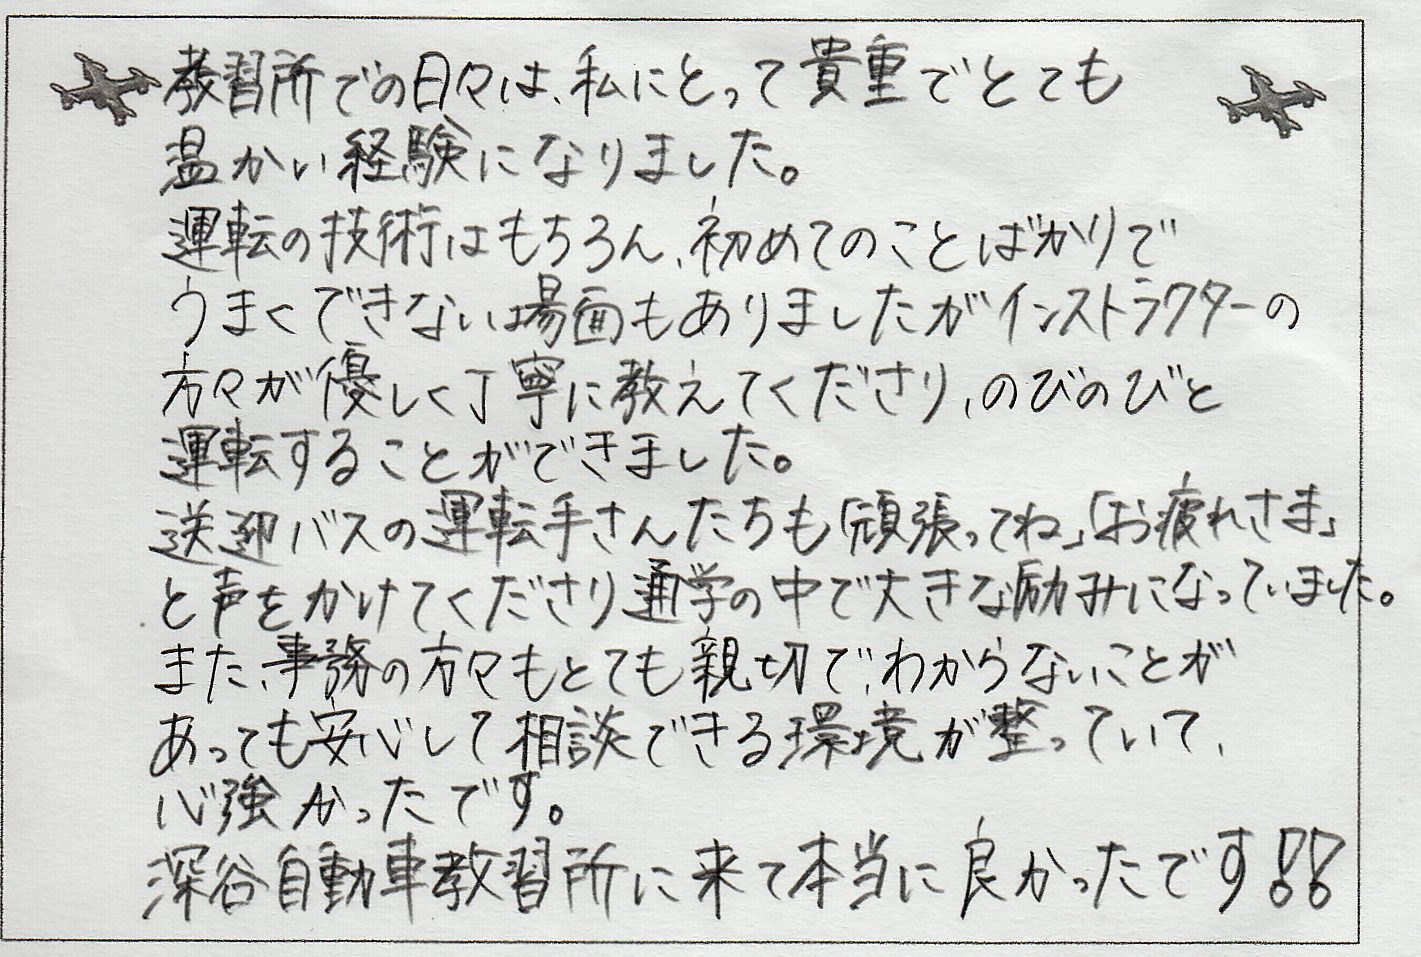 教習所での日々は、私にとって貴重でとても
温かい経験になりました。
運転の技術はもちろん、初めてのことばかりで
うまくできない場面もありましたがインストラクターの
方々が優しく丁寧に教えてくださり、のびのびと
運転することができました。
送迎バスの運転手さんたちも「頑張ってね」「お疲れさま」
と声をかけてくださり通学の中で大きな励みになっていました。
また、事務の方々もとても親切で、わからないことが
あっても安心して相談できる環境が整っていて、
心強かったです。
深谷自動車教習所に来て本当に良かったです!!